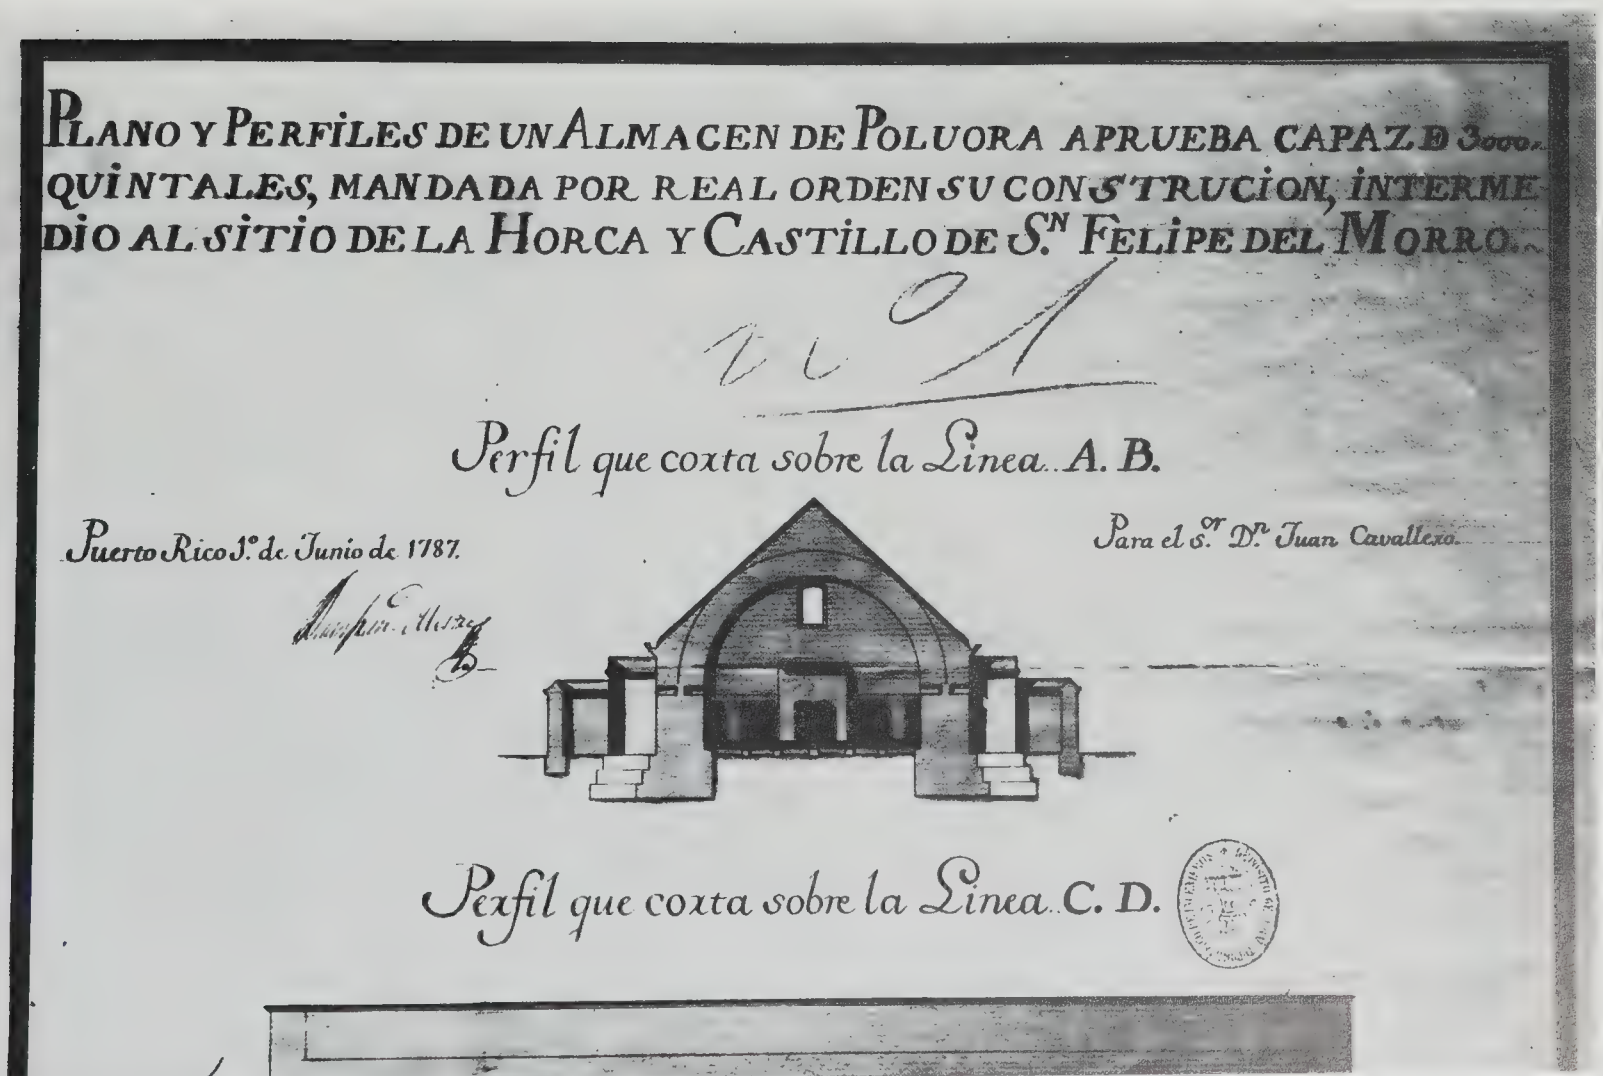 PLANO Y PERFiLES DE UN ALMACEN DE POLUORA APRUEBA CAPAZ Ð 3000.
QUiNTALES, MANDADA POR REAL ORDEN SU CONSTRUCiON, iNTERME
DiO AL SiTiO DE LA HORCA Y CASTiLLO DE S.ᴺ FELiPE DEL MORRO.
nº 1
Perfil que corta sobre la Linea A. B.
Puerto Rico 1.º de Junio de 1787.
Para el s.ᵒʳ D.ⁿ Juan Cavallero.
Perfil que corta sobre la Linea C. D.